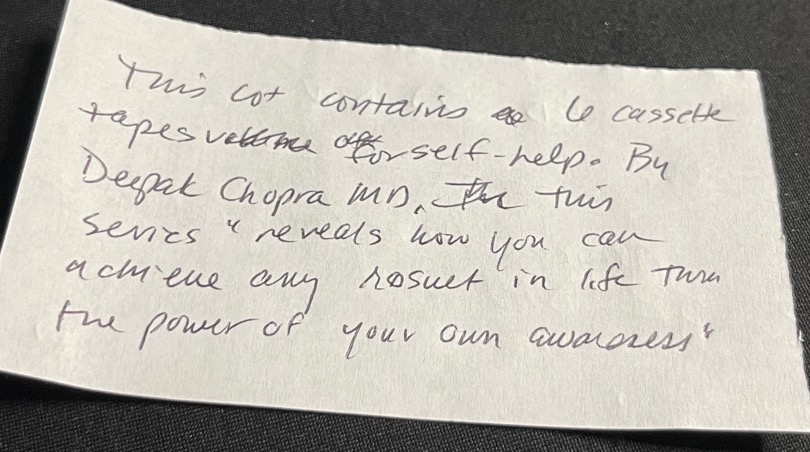 This lot contains 6 cassette
tapes for self-help. By
Deepak Chopra MD, this
series "reveals how you can
achieve any result in life thru
the power of your own awareness"